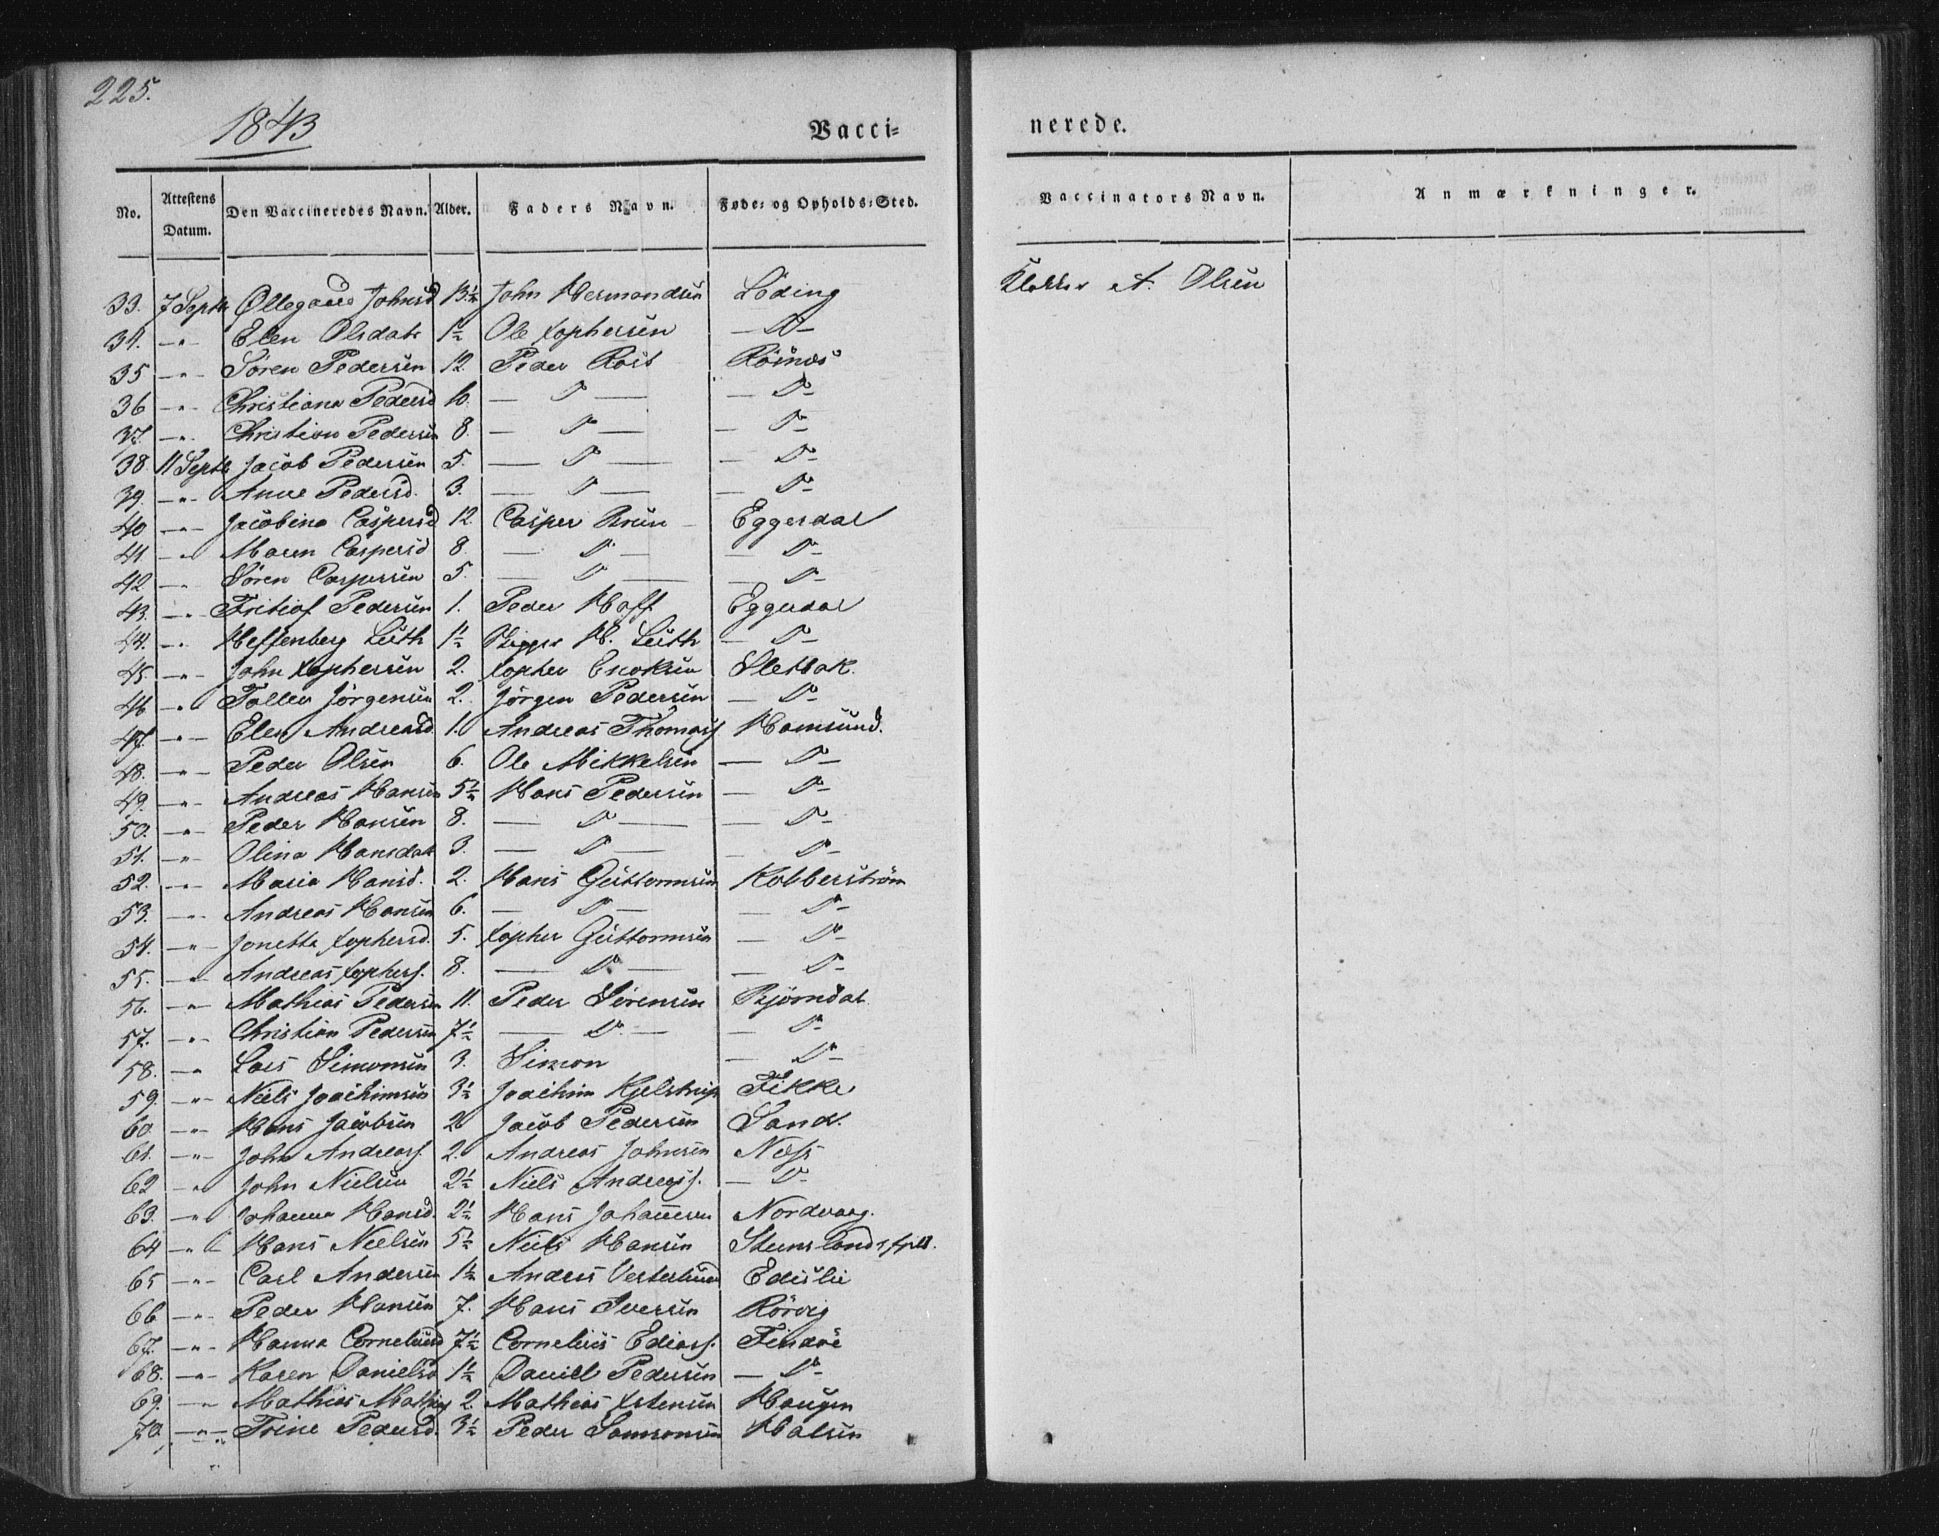 225.
1843
Vacci=
nerede.
No. Attestens Datum. Den Vaccineredes Navn. Alder. Faders Navn. Føde= og Opholds=Sted. Vaccinators Navn. Anmærkninger.
33. 7 Septr Johnsd 13½ John Hermandsen Löding Klokker A. Olsen
34. -"- Elen Olsdatr 1½ Ole Xophersen -D-
35 -"- Sören Pedersen 12 Peder Rosb Rösnæs
36 -"- Christiana Pedersd 10. -D- -D-
37. -"- Christian Pedersen 8. -D- -D-
38. 11 Septr Jacob Pedersen 5. -D- -D-
39. -"- Anne Pedersd. 3. -D- -D-
40 -"- Jacobina Caspersd 12. Casper Brun Eggesdal
41 -"- Maren Caspersd 8. -D- -D-
42 -"- Sören Caspersen 5. -D- -D-
43. -"- Fritiof Pedersen 1. Peder Hoff Eggesdal
44. -"- Heffenberg Lüth 1½ H. Lüth -D-
45 -"- John Xophersen 2. Xopher Enoksen Slettak
46 -"- Tollev Jörgensen 2. Jörgen Pedersen -D-
47. -"- Elen Andreasd. 10 Andreas Thomass Hamsund.
48. -"- Peder Olsen 6. Ole Mikkelsen -D-
49. -"- Andreas Hansen 5½ Hans Pedersen -D-
50. -"- Peder Hansen 8. -D- -D-
51. -"- Olina Hansdatr 3. -D- -D-
52. -"- Maria Hansd. 2. Hans Guttormsen Kobberström
53. -"- Andreas Hansen 6. -D- -D-
54. -"- Jonetta Xophersd. 5. Xopher Guttormsen -D-
55. -"- Andreas Xophers. 8. -D- -D-
56. -"- Mathias Pedersen 11. Peder Sörensen Björndal
57. -"- Christian Pedersen 7½ -D- -D-
58. -"- Lars Simonsen 3. Simon -D-
59. -"- Niels Joachimsen 3½ Joachim Kjelstrup Fikke
60 -"- Hans Jacobsen 2 Jacob Pedersen Sand.
61. -"- John Andreass. 2. Andreas Johnsen Næss
62 -"- John Nielsen 2½ Niels Andreass. -D-
63. -"- Johanna Hansd. 2½ Hans Johannesen Nordvaag.
64 -"- Hans Nielsen 5½ Niels Hansen
65 -"- Carl Andersen 1½ Anders Vesterlund Edislie
66 -"- Peder Hansen 7. Hans Iversen Rörvig
67. -"- Hanna Corneliusd 7½ Cornelius Ediass. Findöe
68. -"- Karen Danielsd 1½ Daniel Pedersen -D-
69. -"- Mathias Mathias 2. Mathias Xstensen Haugen
70. -"- Trine Pedersd. 3½ Peder Samsonsen Halsen